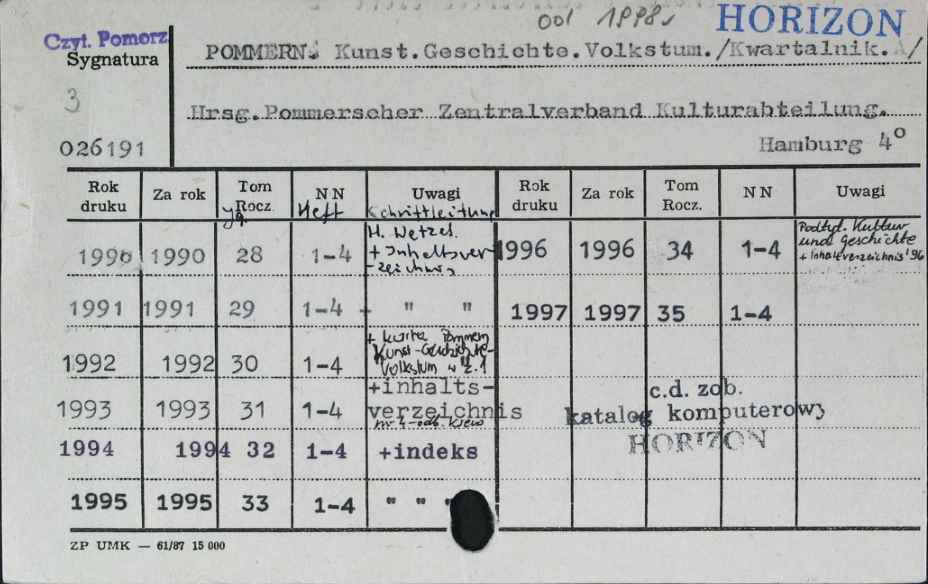 od 1998 r HORIZON
Czyt. Pomorz.
Sygnatura
3
026191
POMMERN. Kunst.Geschichte.Volkstum./Kwartalnik./
Hrsg.Pommerscher Zentralverband Kulturabteilung.
Hamburg 4°
Rok druku Za rok Tom Rocz. NN Uwagi Rok druku Za rok Tom Rocz. NN Uwagi
Jg. Heft Schriftleitung
1990 1990 28 1-4 H. Wetzel. + Inhaltsver-zeichnis 1996 1996 34 1-4 Podtyt. Kultur und Geschichte + inhaltsverzeichnis '96
1991 1991 29 1-4 + " " 1997 1997 35 1-4
1992 1992 30 1-4 + karta Pommern Kunst-Geschichte-Volkstum w H.1
1993 1993 31 1-4 +inhalts-verzeichnis
c.d. zob.
katalog komputerowy
HORIZON
1994 1994 32 1-4 +indeks
1995 1995 33 1-4 " " "
ZP UMK — 61/87 15 000